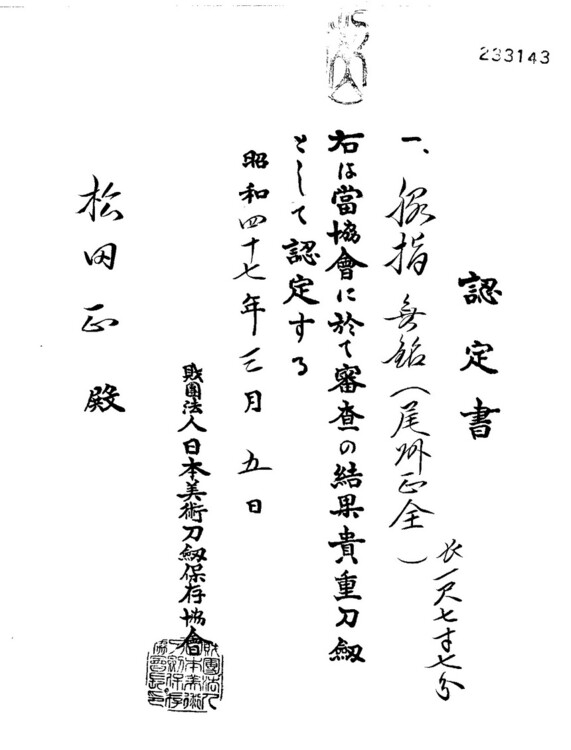 233143
認定書
一、脇指 無銘(尾州正全)
長一尺七寸七分
右は當協會に於て審査の結果貴重刀劔
として認定する
昭和四十七年三月五日
財團法人日本美術刀劔保存協會
松田正殿